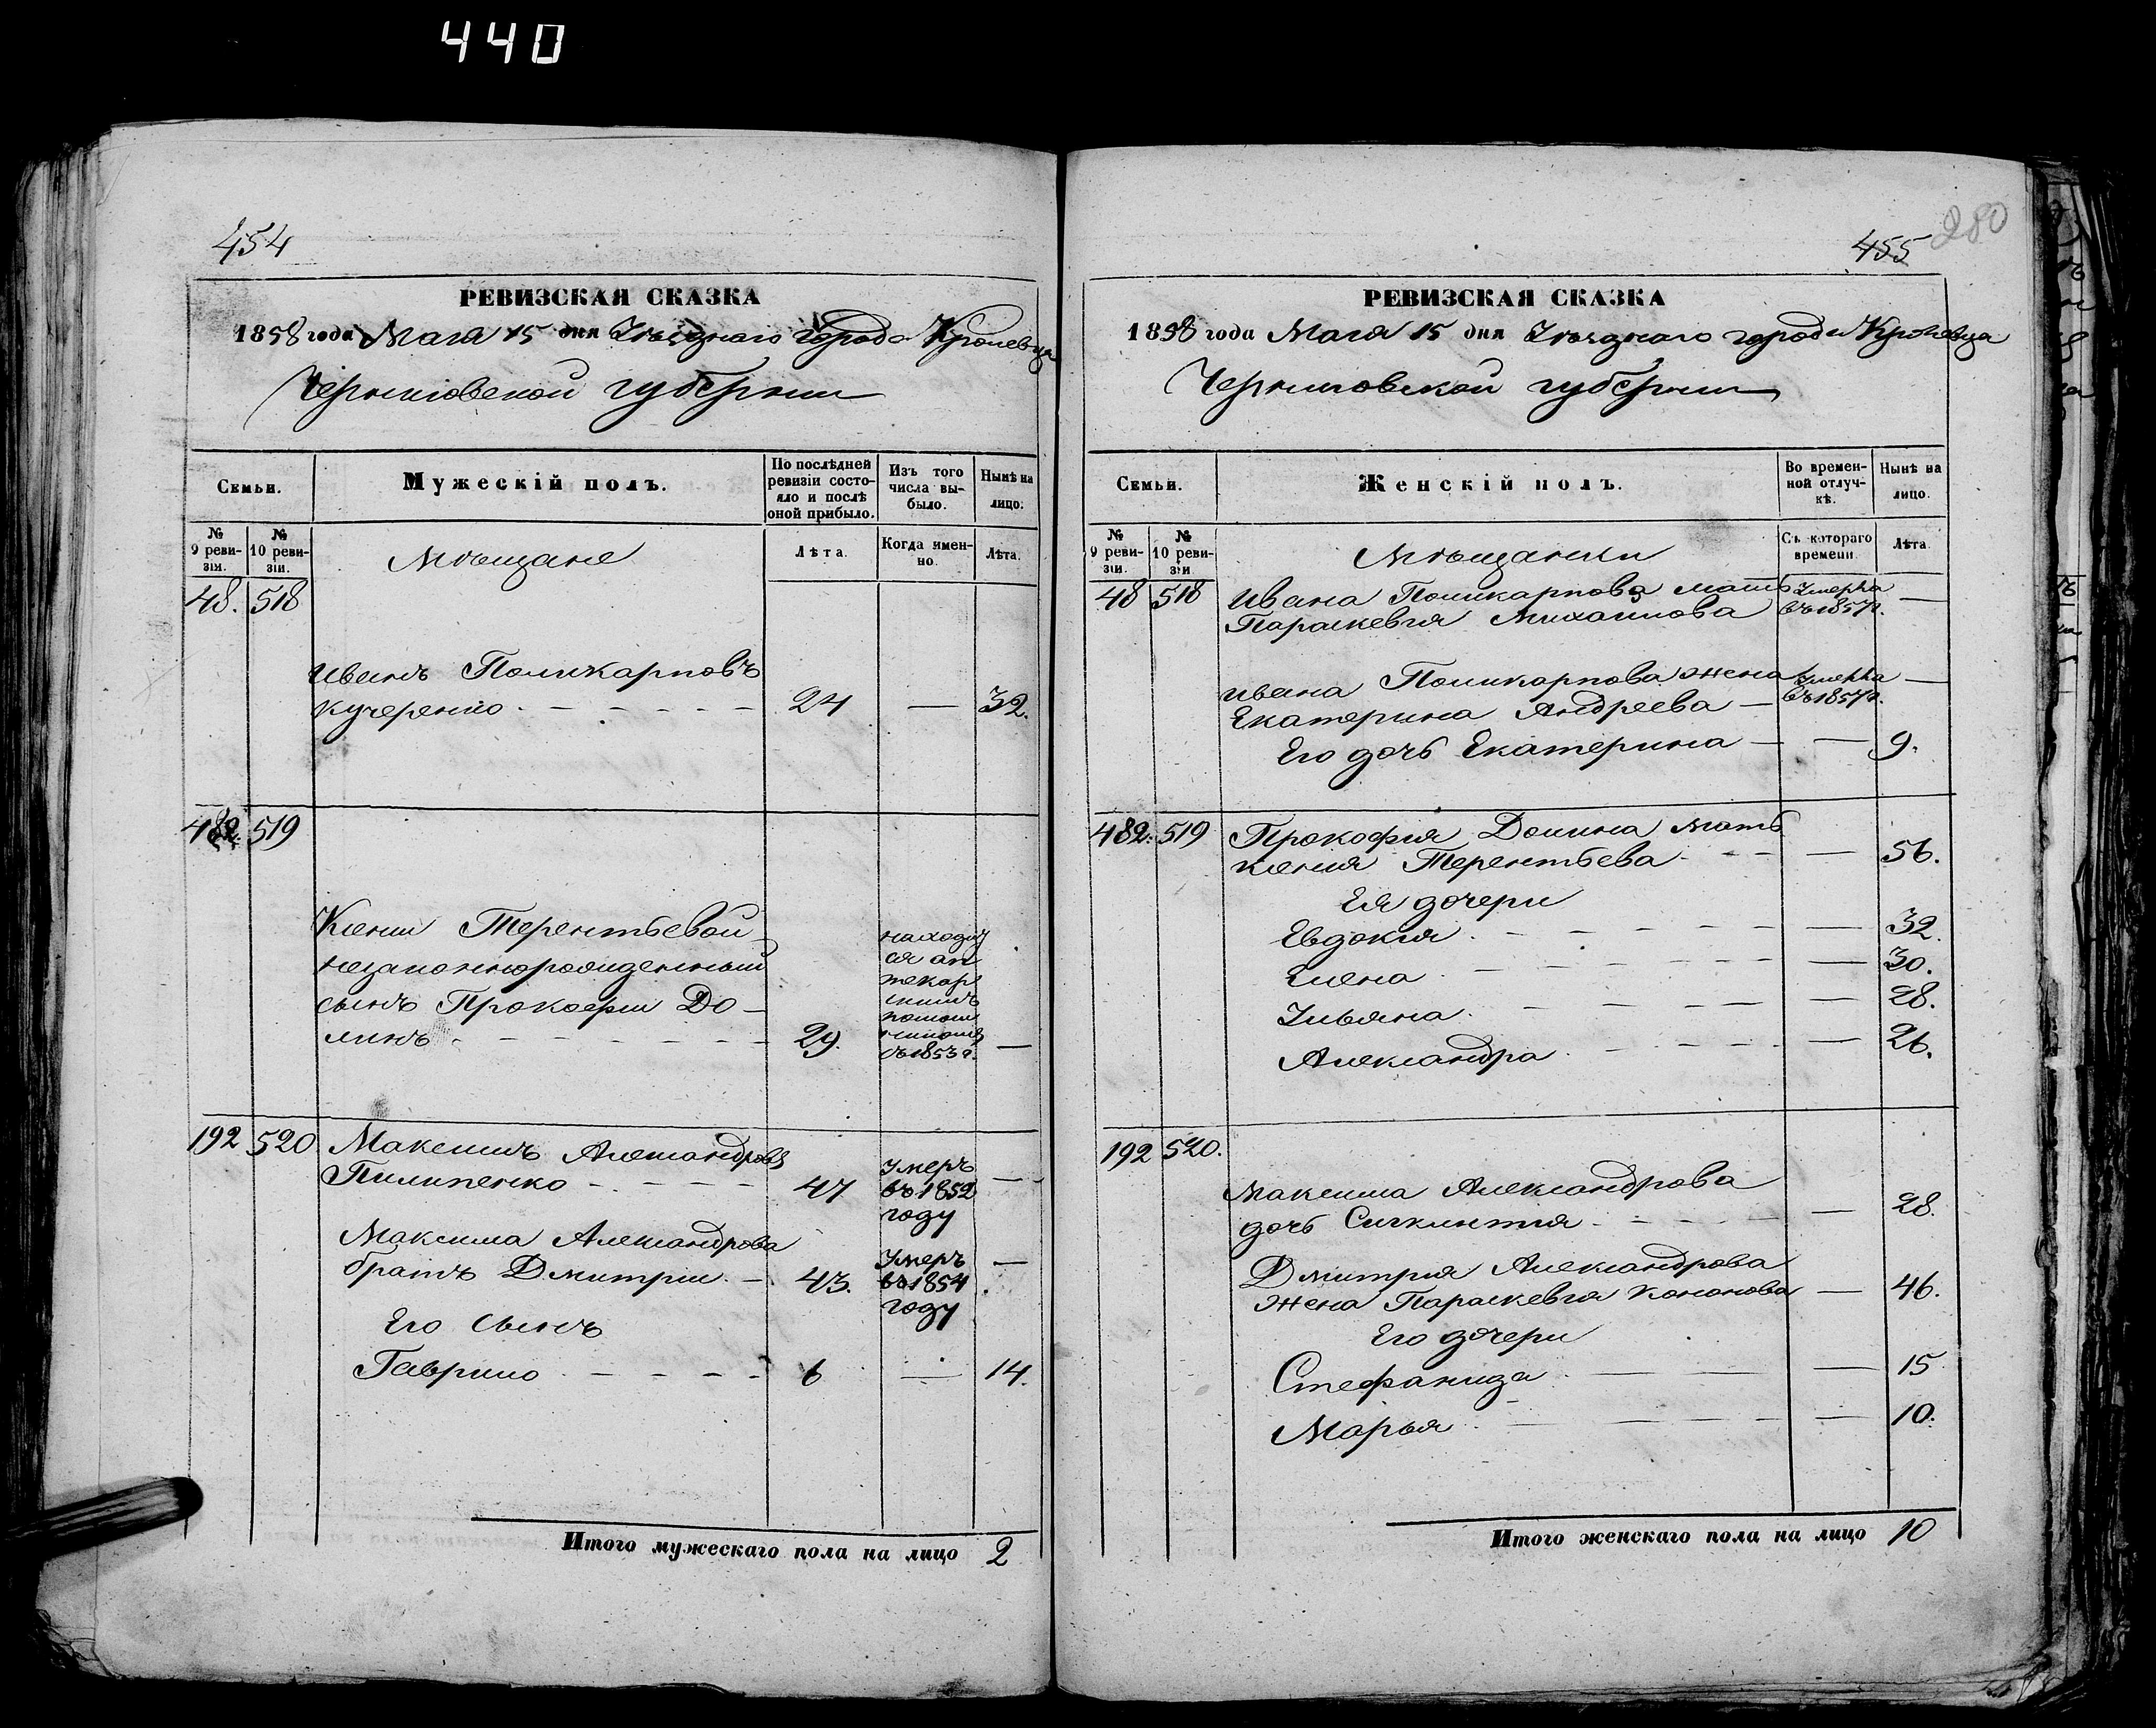 440
454
РЕВИЗСКАЯ СКАЗКА
1858 года Мая 15 дня Уѣзднаго города Кролевца
Черниговской губернии
Семьи.
Мужескій полъ.
По послѣдней ревизіи состояло и послѣ оной прибыло.
Изъ того числа выбыло.
Нынѣ на лицо.
№ 9 ревизіи.
№ 10 ревизіи.
Мѣщане
Лѣта.
Когда именно.
Лѣта.
48. 518
Иванъ Поликарповъ
Кучеренко 24 — 32.
482. 519
Ксении Терентьевой
незаконнорожденный
сынъ Прокофий До-
линъ 29. находит
ся ап
текар
скимъ
помощ
никомъ
съ 1853 г. —
192 520 Максимъ Александровъ
Пилипенко 47 Умеръ
въ 1852
году —
Максима Александрова
братъ Дмитрий 43. Умеръ
въ 1854
году —
Его сынъ
Гаврило 6 — 14.
Итого мужескаго пола на лицо 2
455 280
РЕВИЗСКАЯ СКАЗКА
1858 года Мая 15 дня Уѣзднаго города Кролевца
Черниговской губернии
Семьи.
Женскій полъ.
Во временной отлучкѣ.
Нынѣ на лицо.
№ 9 ревизіи.
№ 10 ревизіи.
Мѣщанки
Съ котораго времени.
Лѣта.
48 518 Ивана Поликарпова мать
Параскевия Михайлова Умерла
въ 1857 г. —
Ивана Поликарпова жена
Екатерина Андреева — Умерла
въ 1857 г. —
Его дочь Екатерина — — 9.
482. 519 Прокофия Долина мать
Ксения Терентьева — 56.
Ея дочери
Евдокия — 32.
Елена — 30.
Ульяна — 28.
Александра — 26.
192 520.
Максима Александрова
дочь Сигклития — 28.
Дмитрия Александрова
жена Параскевия Кононова — 46.
Его дочери
Стефанида — 15
Марья — 10.
Итого женскаго пола на лицо 10